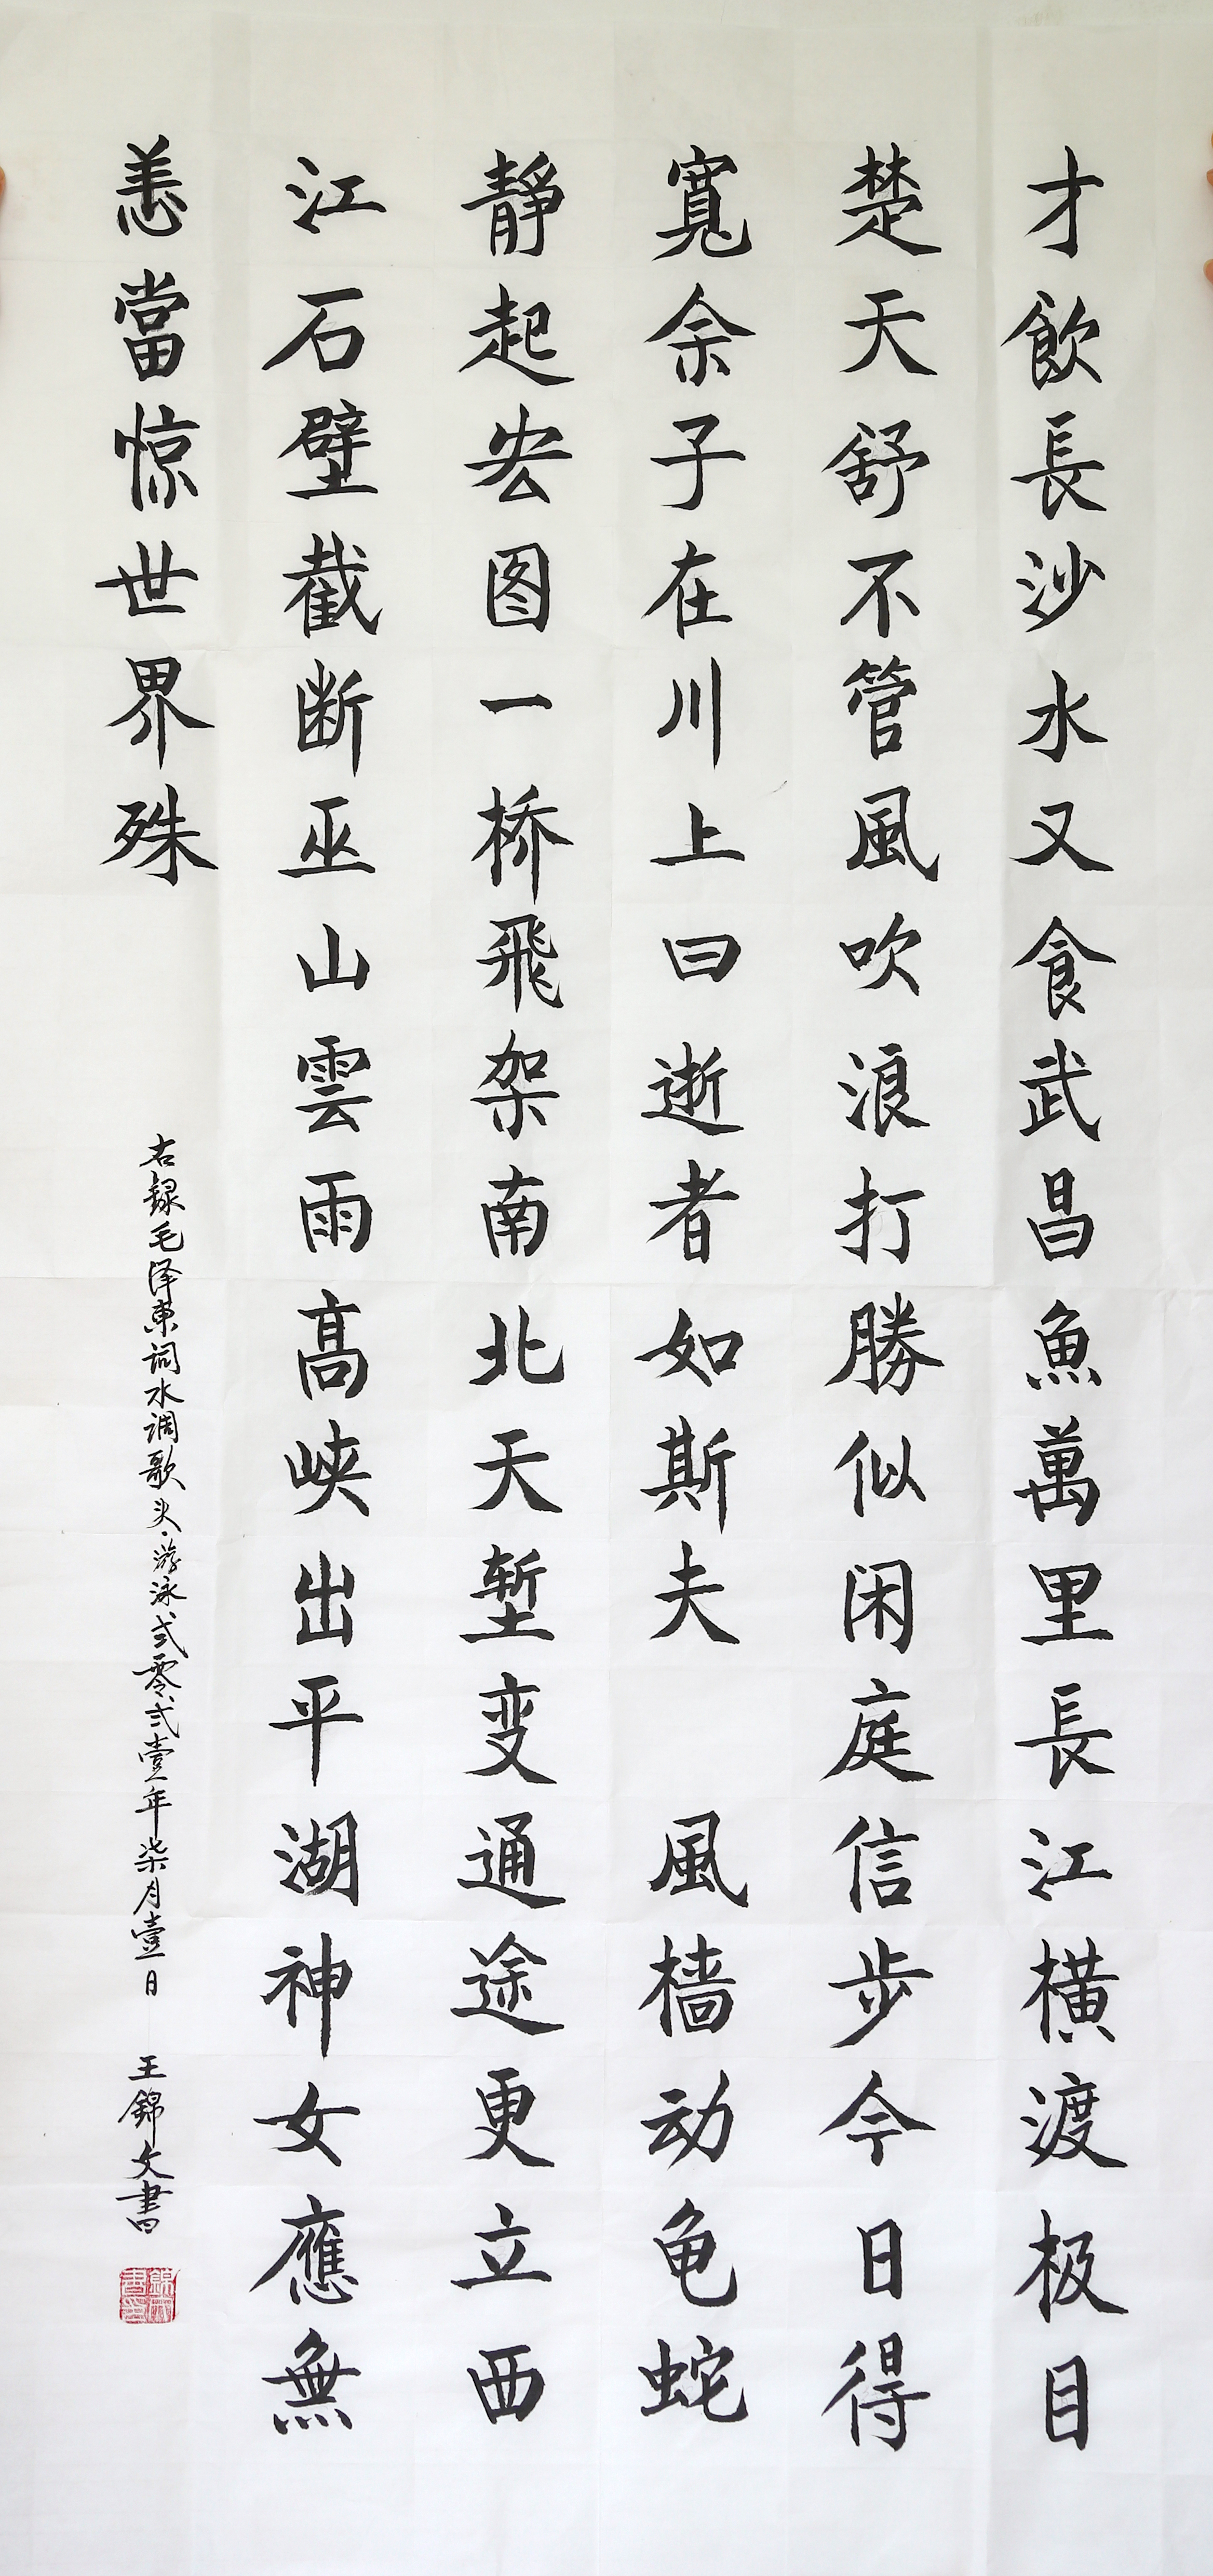 才飲長沙水又食武昌魚萬里長江橫渡极目
楚天舒不管風吹浪打勝似闲庭信步今日得
寬余子在川上曰逝者如斯夫 風檣动龟蛇
靜起宏图一桥飛架南北天堑变通途更立西
江石壁截断巫山雲雨高峡出平湖神女應無
恙當惊世界殊
右録毛泽東詞水调歌头·游泳弍零弍壹年柒月壹日 王錦文書